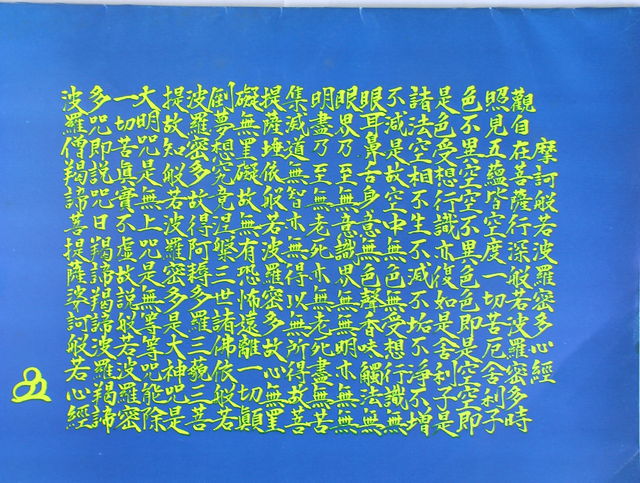 摩訶般若波羅密多心經
觀自在菩薩行深般若波羅密多時
照見五蘊皆空度一切苦厄舍利子
色不異空空不異色色即是空空即
是色受想行識亦復如是舍利子是
諸法空相不生不滅不垢不淨不增
不減是故空中無色無受想行識無
眼耳鼻舌身意無色聲香味觸法無
眼界乃至無意識界無無明亦無無
明盡乃至無老死亦無老死盡無苦
集滅道無智亦無得以無所得故菩
提薩埵依般若波羅密多故心無罣
礙無罣礙故無有恐怖遠離一切顛
倒夢想究竟涅槃三世諸佛依般若
波羅密多故得阿耨多羅三藐三菩
提故知般若波羅密多是大神咒是
大明咒是無上咒是無等等咒能除
一切苦真實不虛故說般若波羅密
多咒即說咒曰羯諦羯諦波羅羯諦
波羅僧羯諦菩提薩婆訶般若心經